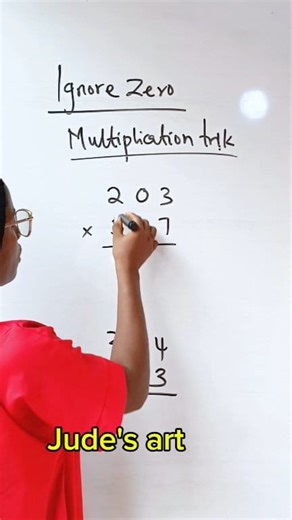 Ignore Zero
Multiplication trik
2 0 3
× 7
4
3
Jude's art